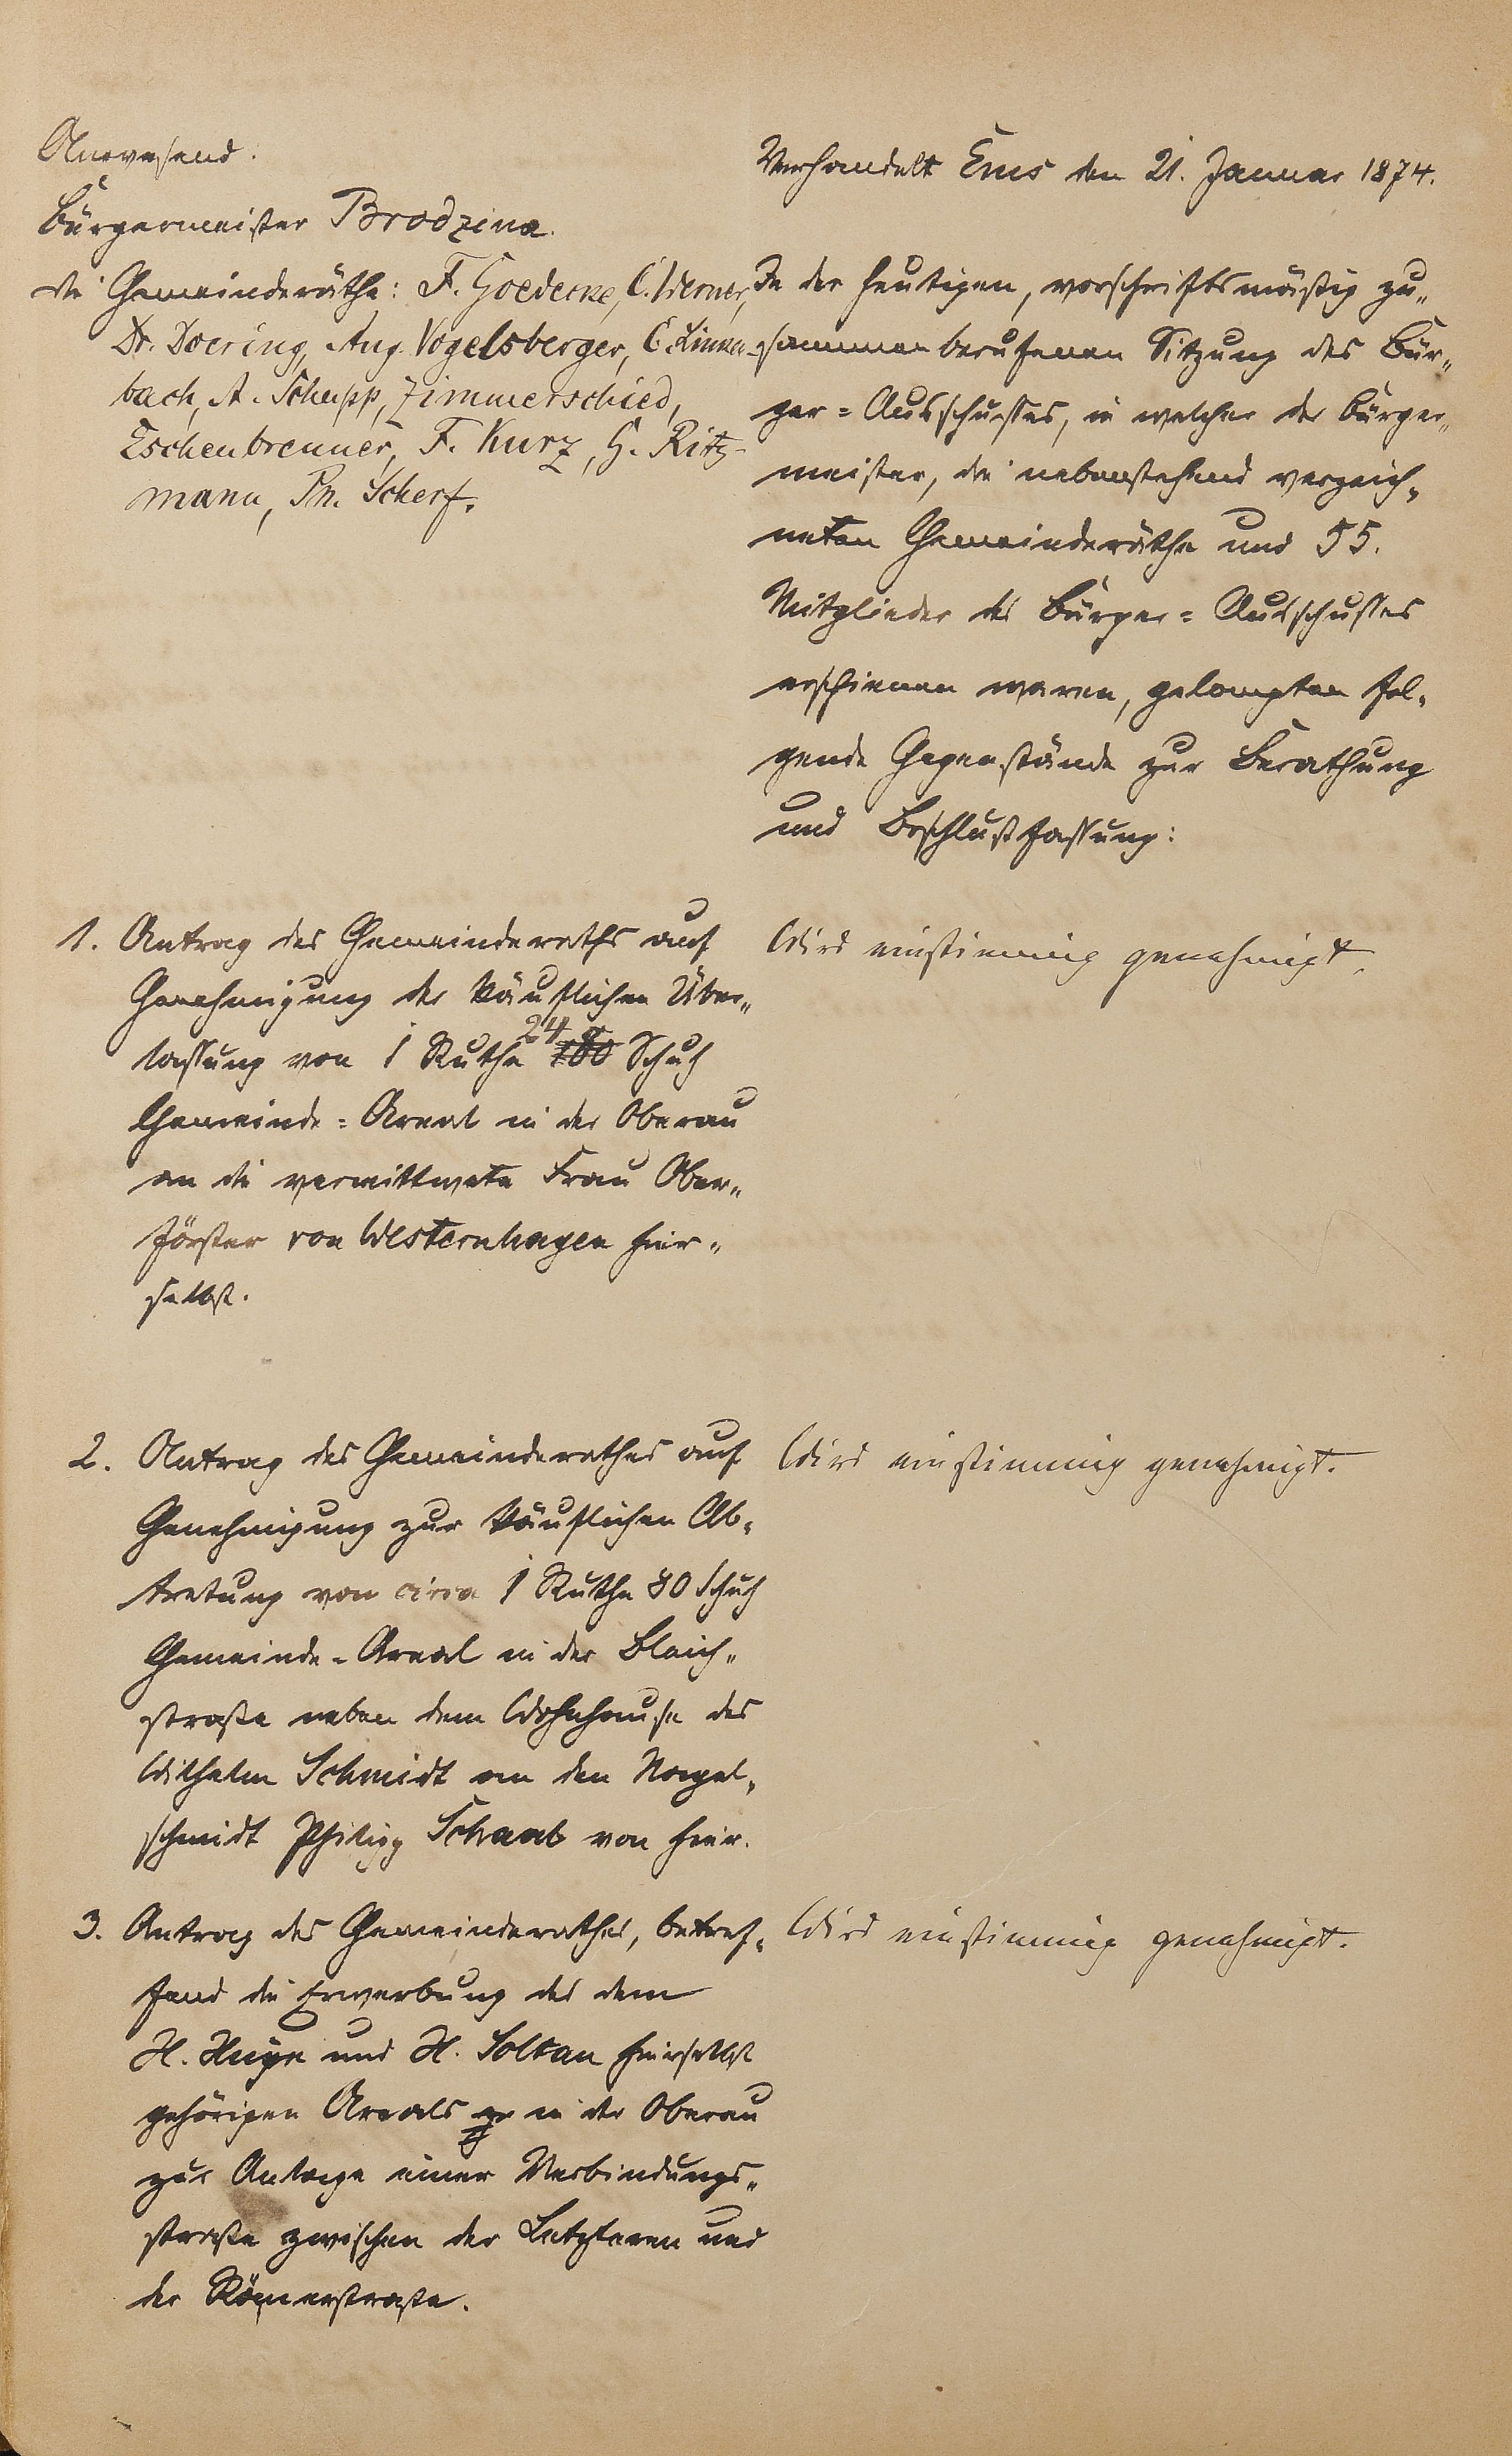 Anwesend.
Bürgermeister Brodzina.
die Gemeinderäthe: F. Goedecke, C. Werner,
Dr. Doering, Aug. Vogelsberger, C. Linken-
bach, A. Schupp, Zimmerschied,
Eschenbrenner, F. Kurz, G. Ritz-
mann, Ph. Scherf.
Verhandelt Ems den 21. Januar 1874.
In der heutigen, vorschriftsmäßig zu„
sammenberufenen Sitzung des Bür„
ger=Ausschusses, in welcher der Bürger„
meister, die nebenstehend verzeich„
neten Gemeinderäthe und 55.
Mitglieder des Bürger=Ausschusses
erschienen waren, gelangten fol„
gende Gegenstände zur Berathung
und Beschlußfassung:
1. Antrag des Gemeinderaths auf
Genehmigung der käuflichen Über„
lassung von 1 Ruthe 24 Schuh
Gemeinde=Areal in der Oberau
an die verwittwete Frau Ober„
förster von Westernhagen hier„
selbst.
Wird einstimmig genehmigt.
2. Antrag des Gemeinderathes auf
Genehmigung zur käuflichen Ab„
tretung von circa 1 Ruthe 80 Schuh
Gemeinde=Areal in der Bleich„
straße neben dem Wohnhause des
Wilhelm Schmidt an den Nagel„
schmidt Philipp Schaab von hier.
Wird einstimmig genehmigt.
3. Antrag des Gemeinderathes, betref„
fend die Erwerbung des dem
H. Huyn und H. Soltan hierselbst
gehörigen Areals in der Oberau
zur Anlage einer Verbindungs„
straße zwischen der Letzteren und
der Römerstraße.
Wird einstimmig genehmigt.